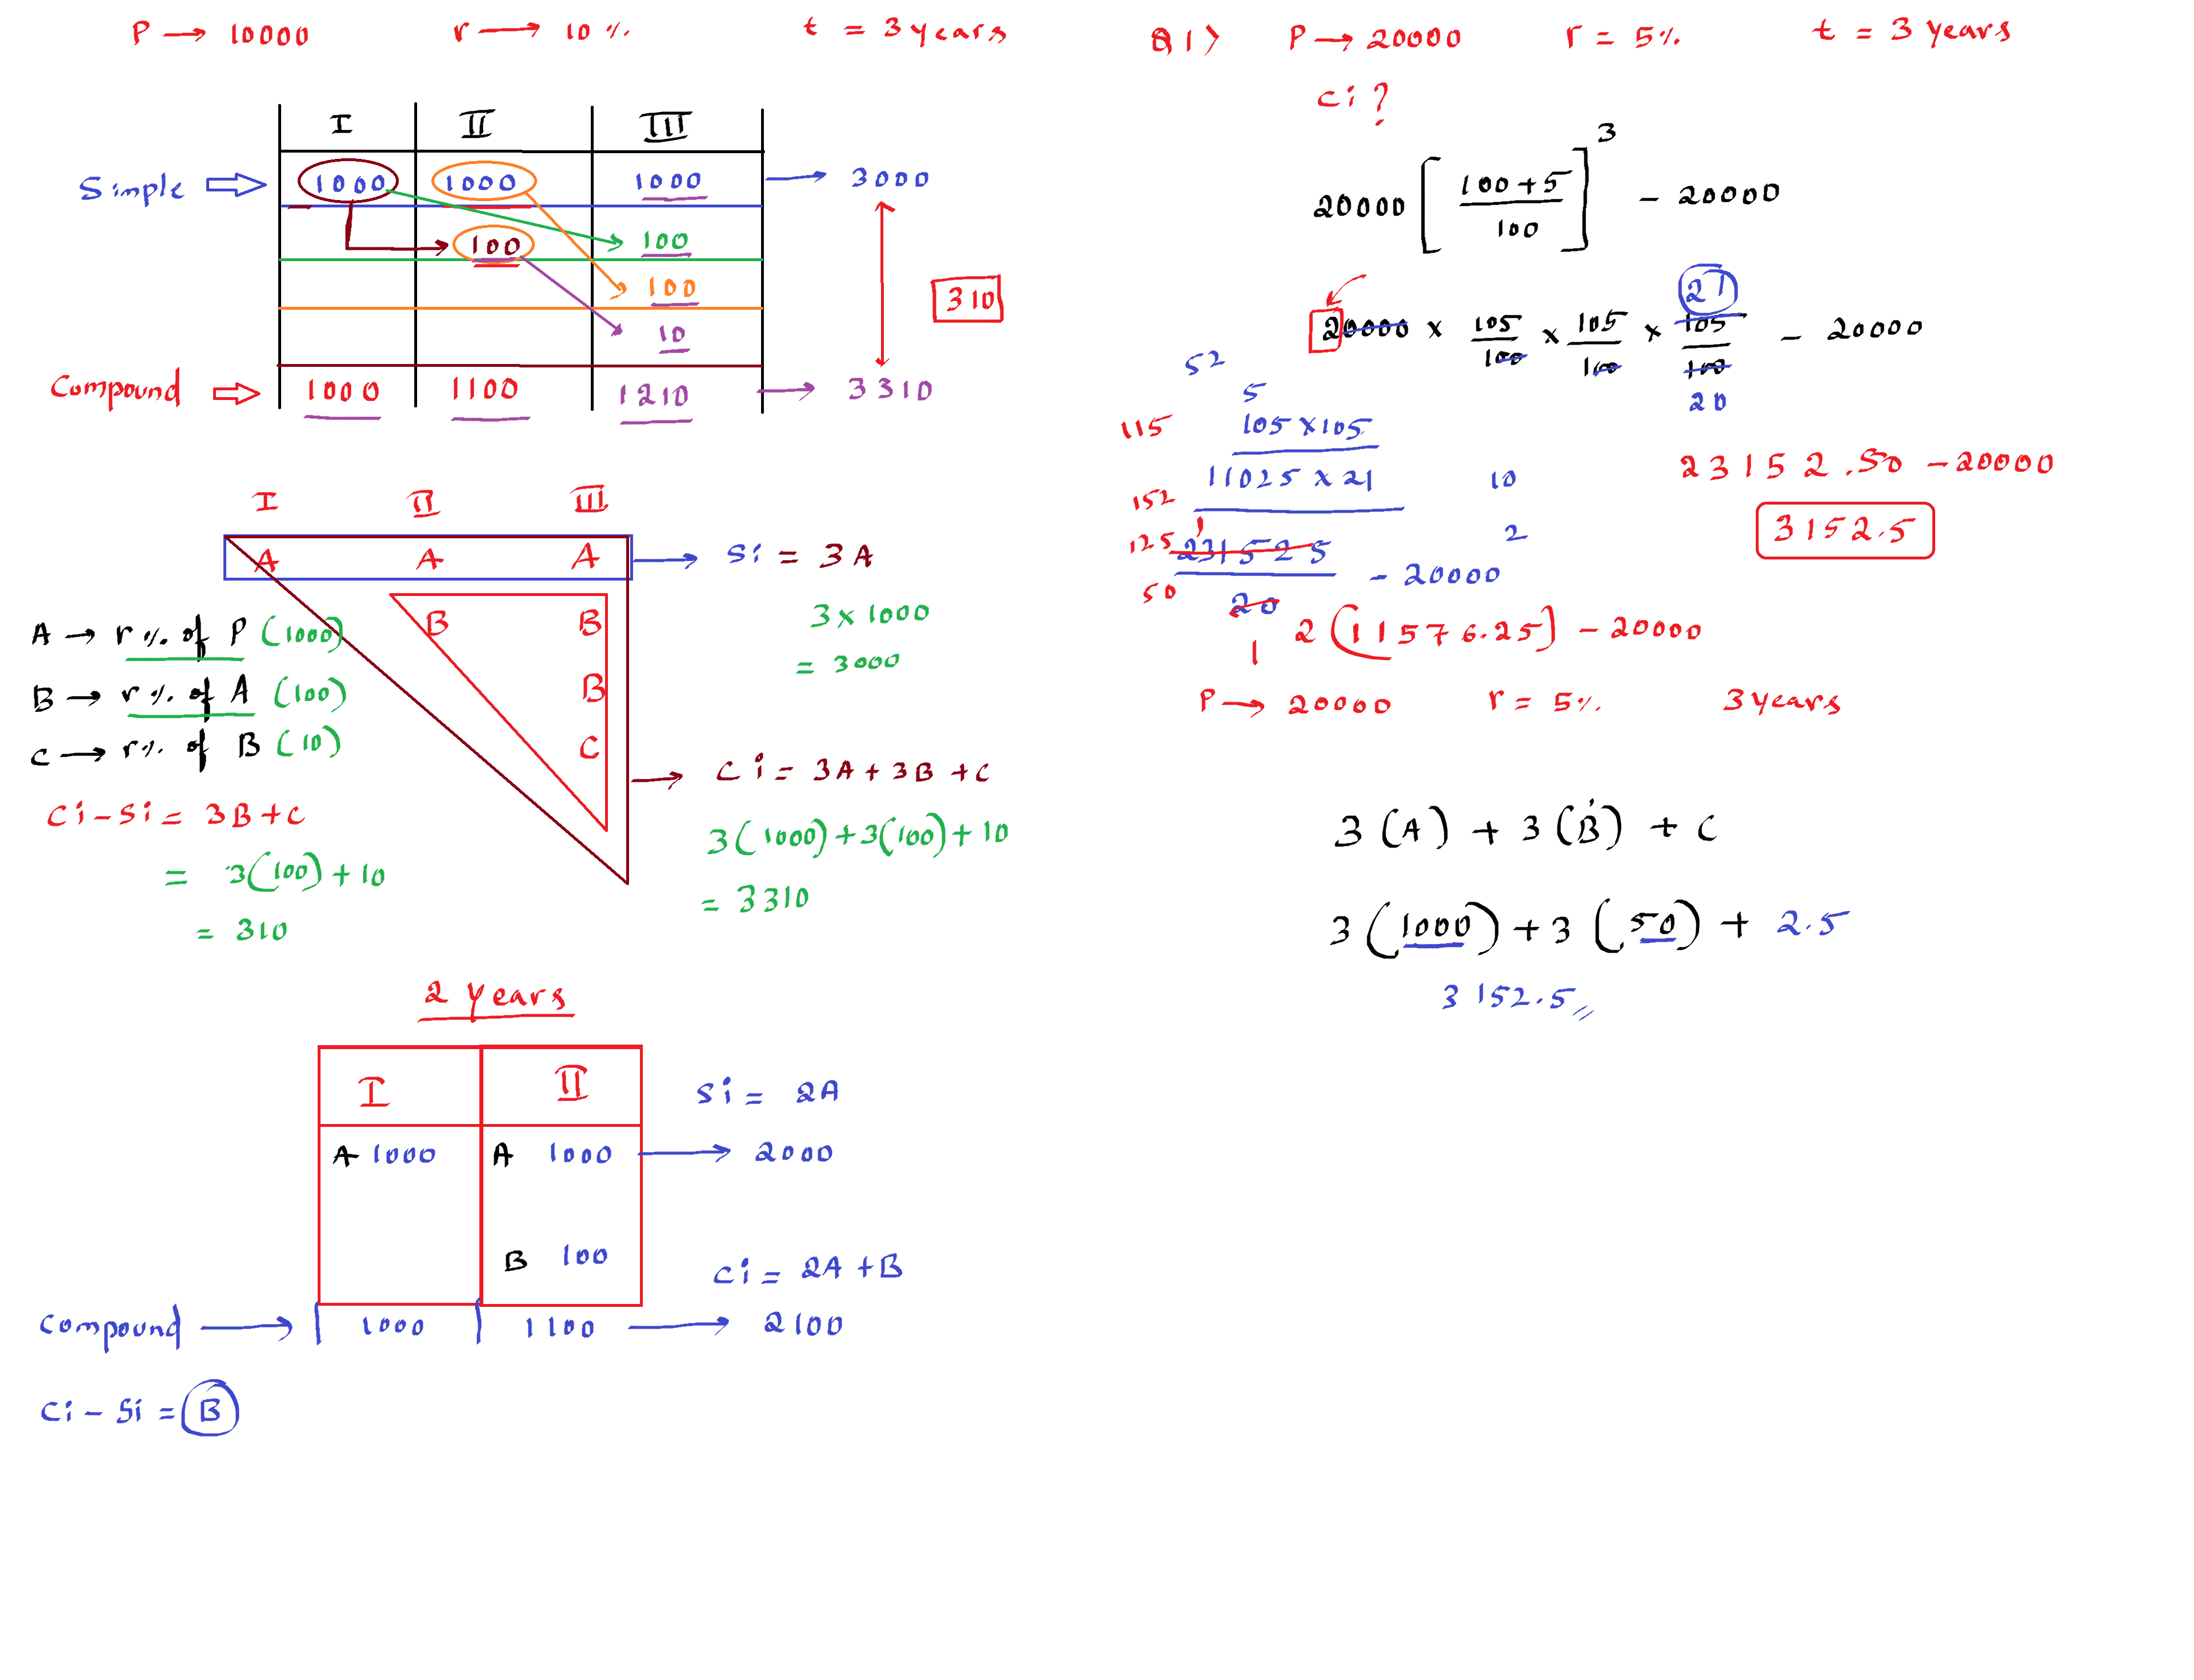 P → 10000 r → 10 % t = 3 years
I II III
Simple ⇒ 1000 1000 1000 → 3000
100 100
100
10
310
Compound ⇒ 1000 1100 1210 → 3310
I II III
A A A → Si = 3A
3 x 1000
= 3000
B B
B
C
A → r % of P (1000)
B → r % of A (100)
C → r % of B (10)
Ci = 3A + 3B + C
3(1000) + 3(100) + 10
= 3310
Ci - Si = 3B + C
= 3(100) + 10
= 310
2 years
I II
Si = 2A
A 1000 A 1000 → 2000
B 100
Ci = 2A + B
Compound → 1000 1100 → 2100
Ci - Si = B
Q1) P → 20000 r = 5% t = 3 years
Ci ?
20000 [ 100 + 5 / 100 ]³ - 20000
21
20000 x 105/100 x 105/100 x 105/100 - 20000
20
52
5
115 105 x 105
11025 x 21 10
152
1 2
125 231525 / 20 - 20000
50
1
2 (11576.25) - 20000
23152.50 - 20000
3152.5
P → 20000 r = 5% 3 years
3 (A) + 3 (B) + C
3 (1000) + 3 (50) + 2.5
3152.5